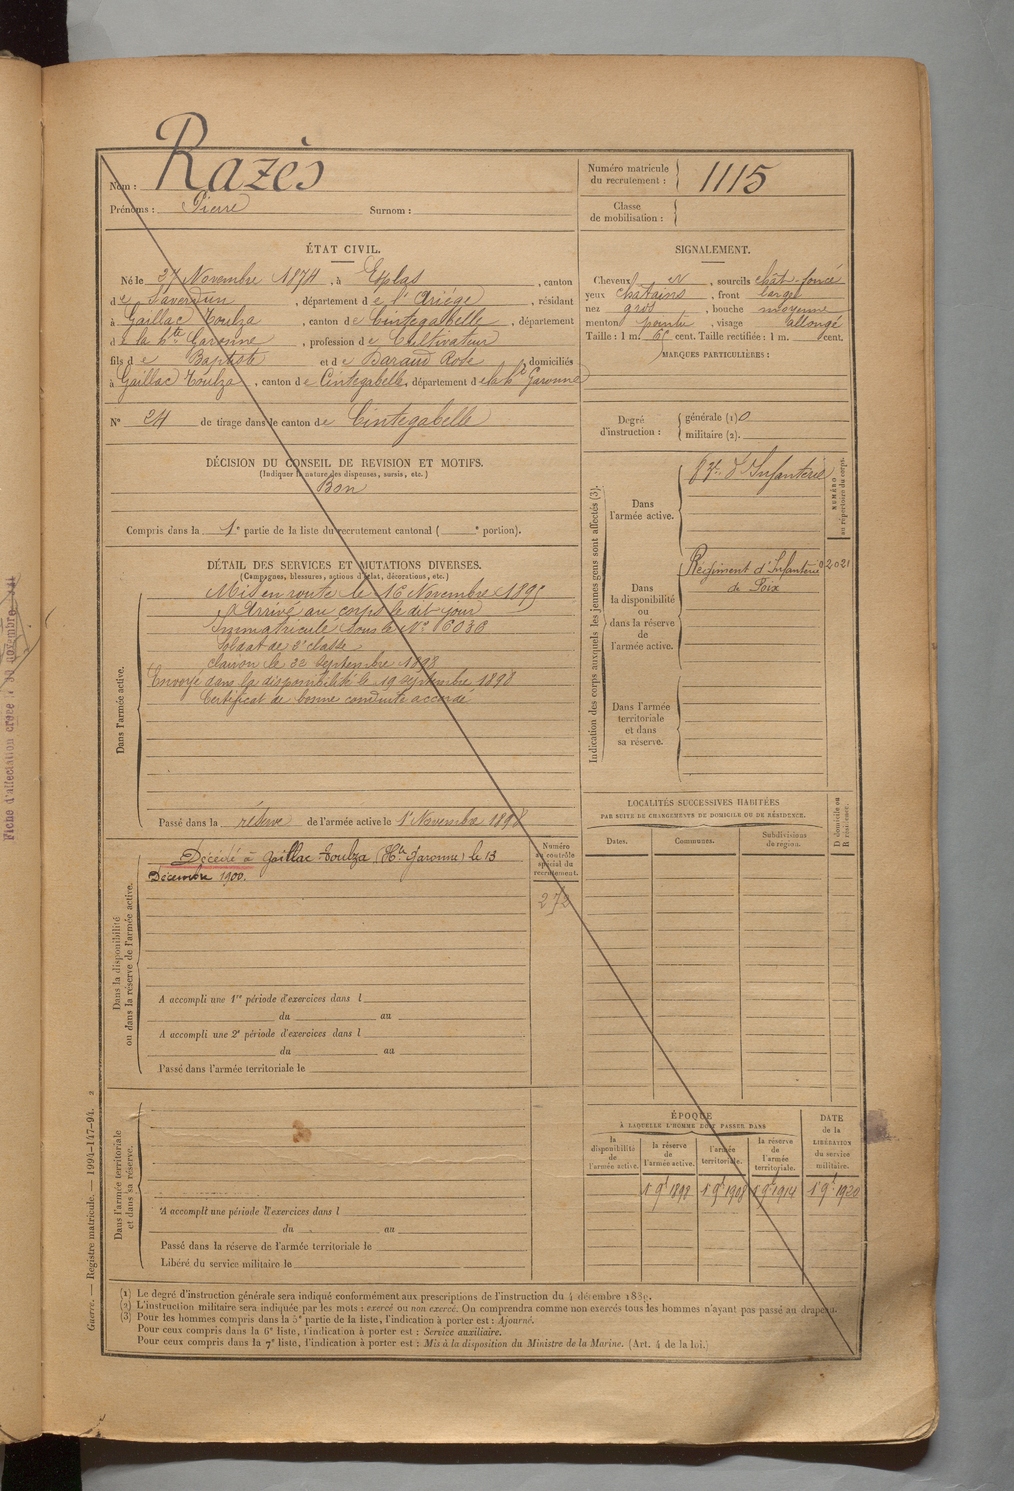 Razès
Nom :
Prénoms : Pierre Surnom :
Numéro matricule
du recrutement : 1115
Classe
de mobilisation :
ÉTAT CIVIL.
Né le 27 Novembre 1874, à Esplas, canton
de Saverdun, département de l'Ariége, résidant
à Gaillac Toulza, canton de Cintegabelle, département
de la hte Garonne, profession de Cultivateur
fils de Baptiste et de Baraud Rose, domiciliés
à Gaillac Toulza, canton de Cintegabelle, département de la hte Garonne
N° 24 de tirage dans le canton de Cintegabelle
SIGNALEMENT.
Cheveux, sourcils chât-foncé
yeux chatains, front large
nez gros, bouche moyenne
menton pointu, visage allongé
Taille : 1 m. 65 cent. Taille rectifiée : 1 m. cent.
MARQUES PARTICULIÈRES :
Degré
d'instruction :
générale (1) 0
militaire (2).
DÉCISION DU CONSEIL DE REVISION ET MOTIFS.
(Indiquer la nature des dispenses, sursis, etc.)
Bon
Compris dans la 1e partie de la liste du recrutement cantonal ( e portion).
DÉTAIL DES SERVICES ET MUTATIONS DIVERSES.
(Campagnes, blessures, actions d'éclat, décorations, etc.)
Dans l'armée active.
Mis en route le 16 Novembre 1895
Arrivé au corps le dit jour
Immatriculé sous le N° 6036
Soldat de 2e classe
Clairon le septembre 1898
Envoyé dans la disponibilité le 19 septembre 1898
Certificat de bonne conduite accordé
Passé dans la réserve de l'armée active le 1er Novembre 1898
Indication des corps auxquels les jeunes gens sont affectés (3).
Dans
l'armée active.
d'Infanterie
NUMÉRO
au répertoire du corps.
Dans
la disponibilité
ou
dans la réserve
de
l'armée active.
Régiment d'Infanterie
de Foix
Dans l'armée
territoriale
et dans
sa réserve.
LOCALITÉS SUCCESSIVES HABITÉES
PAR SUITE DE CHANGEMENTS DE DOMICILE OU DE RÉSIDENCE.
Dates. Communes. Subdivisions
de région.
D domicile ou
R résidence.
Dans la disponibilité
ou dans la réserve de l'armée active.
Décédé à Gaillac-Toulza (Hte Garonne) le 13
Décembre 1900.
Numéro
au contrôle
spécial du
recrutement.
272
A accompli une 1re période d'exercices dans l
du au
A accompli une 2e période d'exercices dans l
du au
Passé dans l'armée territoriale le
Dans l'armée territoriale
et dans sa réserve.
A accompli une période d'exercices dans l
du au
Passé dans la réserve de l'armée territoriale le
Libéré du service militaire le
ÉPOQUE
À LAQUELLE L'HOMME DOIT PASSER DANS
la
disponibilité
de
l'armée active.
la réserve
de
l'armée active.
l'armée
territoriale.
la réserve
de
l'armée
territoriale.
DATE
de la
LIBÉRATION
du service
militaire.
1 9e 1898 1 9e 1908 1 9e 1914 1 9e 1920
(1) Le degré d'instruction générale sera indiqué conformément aux prescriptions de l'instruction du 4 décembre 1889.
(2) L'instruction militaire sera indiquée par les mots : exercé ou non exercé. On comprendra comme non exercés tous les hommes n'ayant pas passé au drapeau.
(3) Pour les hommes compris dans la 5e partie de la liste, l'indication à porter est : Ajourné.
Pour ceux compris dans la 6e liste, l'indication à porter est : Service auxiliaire.
Pour ceux compris dans la 7e liste, l'indication à porter est : Mis à la disposition du Ministre de la Marine. (Art. 4 de la loi.)
Guerre. — Registre matricule. — 1994-147-94. 2
Fiche d'affectation